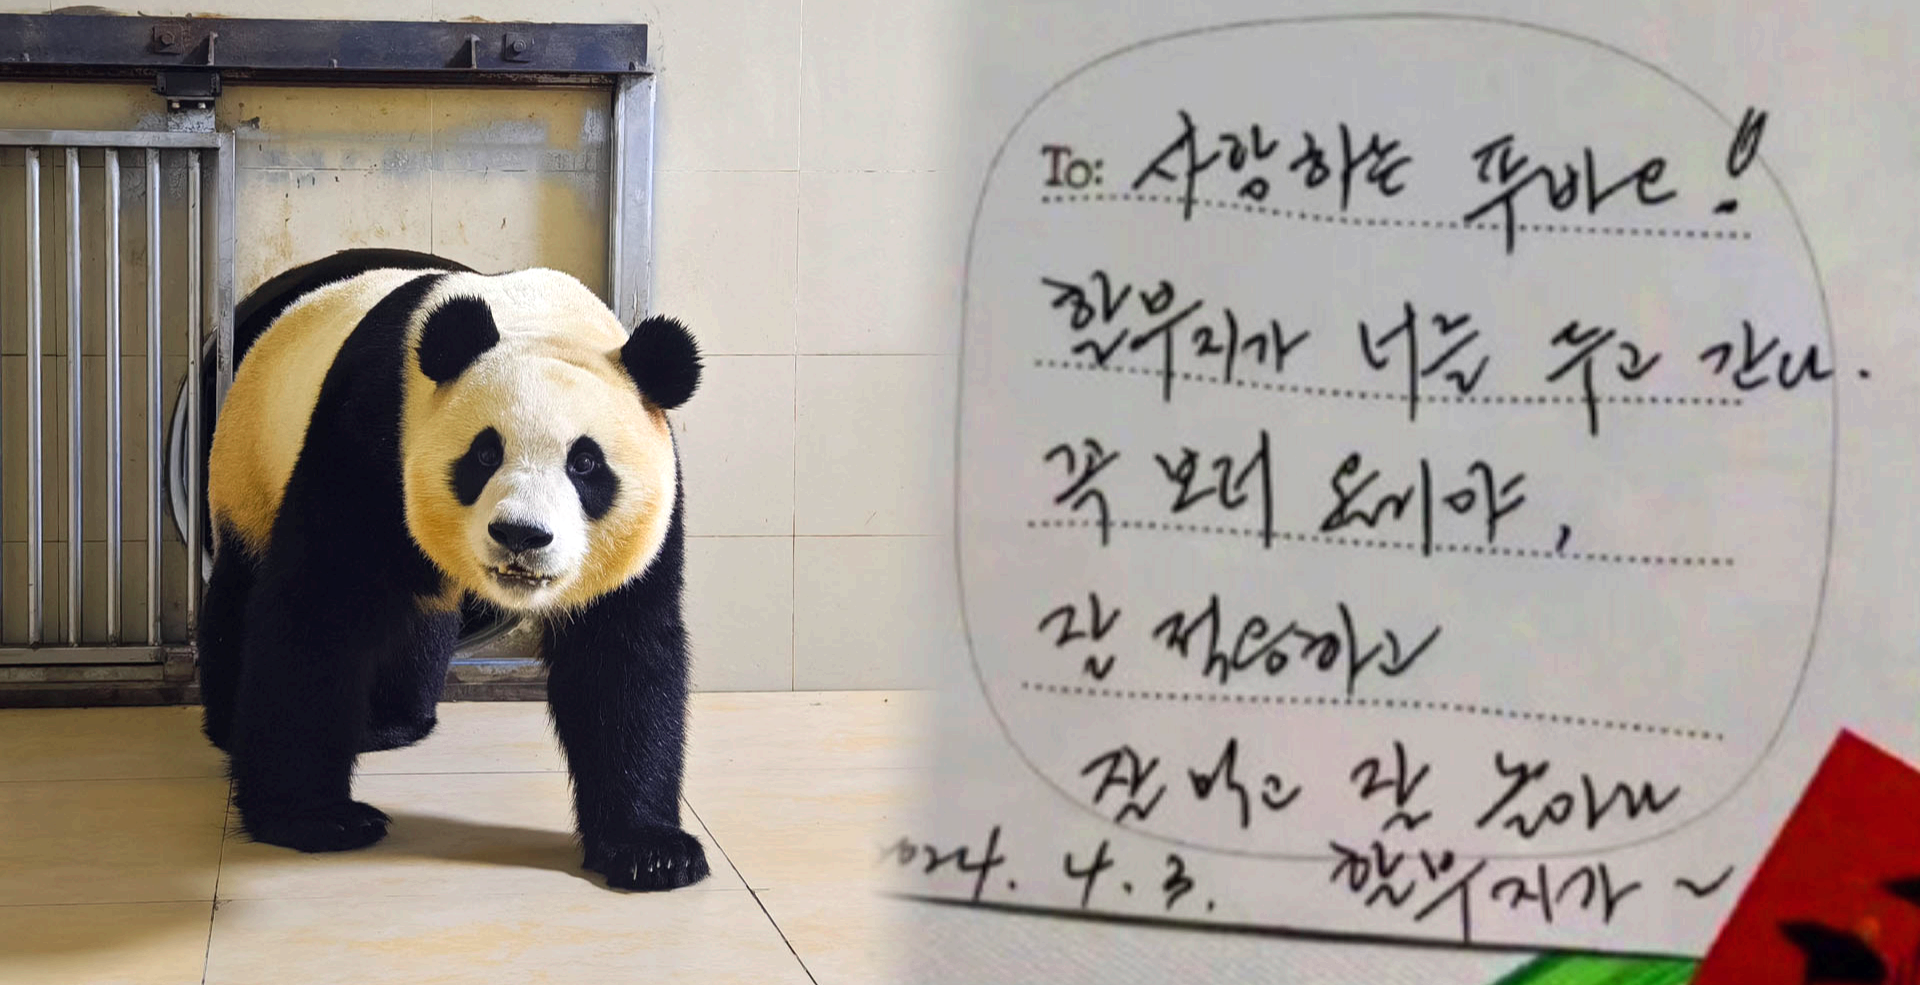 To: 사랑하는 푸바오!
할부지가 너를 두고 간다.
꼭 보러 올게야,
잘 적응하고
잘 먹고 잘 놀아라
2024. 4. 3. 할부지가~